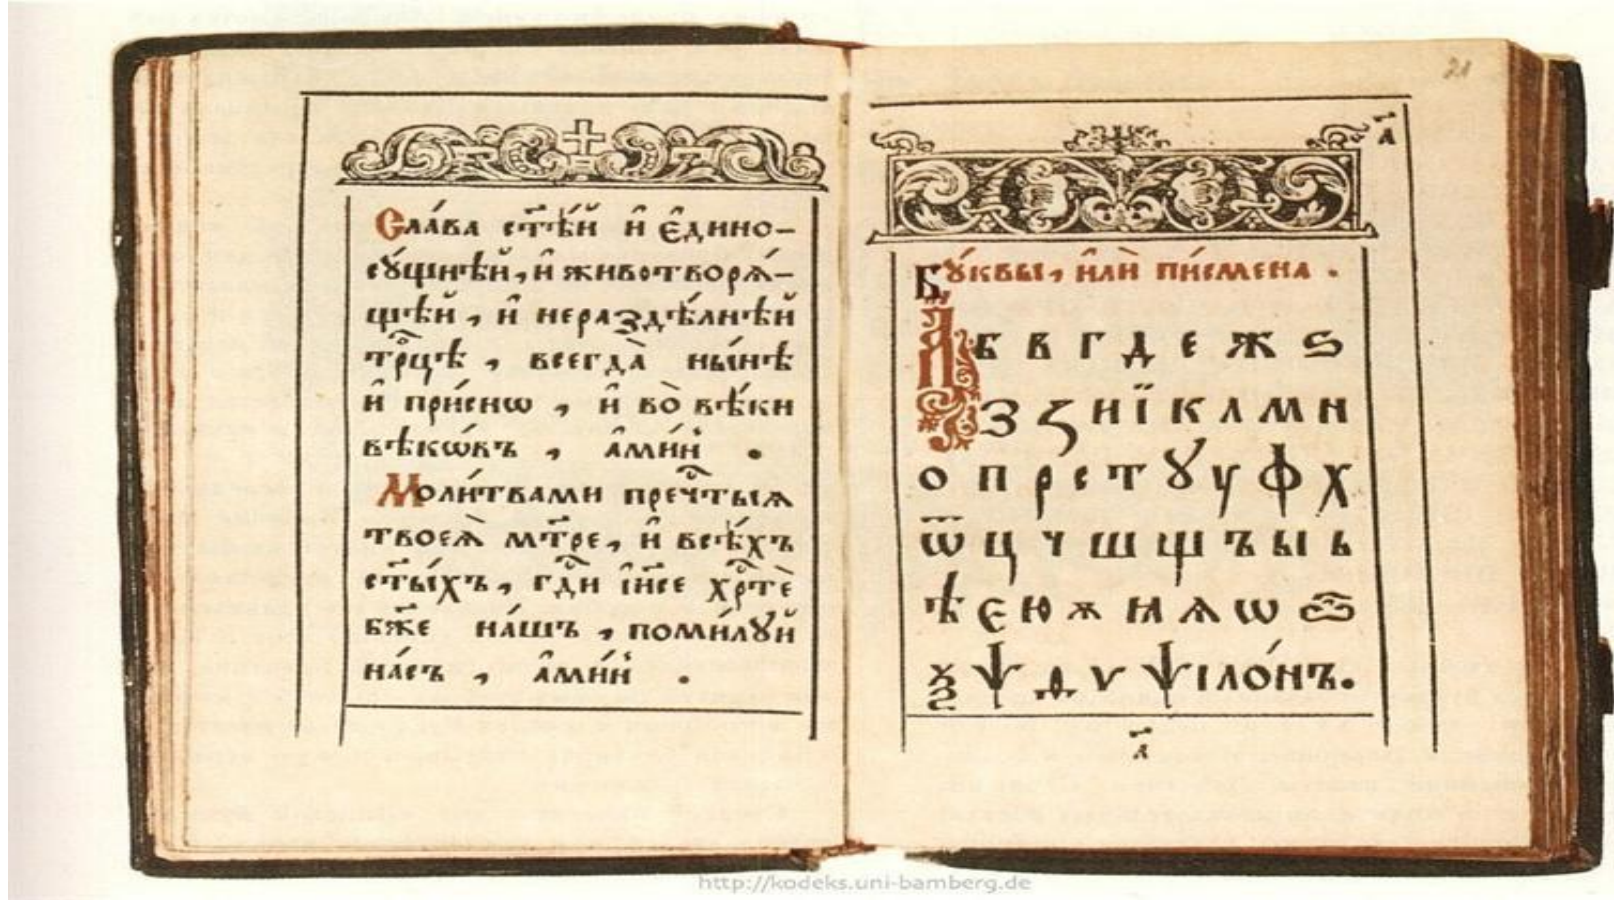 Сла́ва ст҃ѣ́й и҆ є҆дино-
сꙋ́щнѣй, и҆ животворѧ́-
щѣй, и҆ нераздѣ́лнѣй
трⷪ҇цѣ, всегда̀ ны́нѣ
и҆ при́снѡ, и҆ во̀ вѣ́ки
вѣкѡ́въ, а҆ми́нь.
Моли́твами пречⷭ҇тыѧ
твоеѧ̀ мт҃ре, и҆ всѣ́хъ
ст҃ы́хъ, гдⷭ҇и і҆и҃се хрⷭ҇тѐ
бж҃е на́шъ, поми́лꙋй
на́съ, а҆ми́нь.
21
а҃
Бꙋ́квы, и҆лѝ пи́смена.
А Б В Г Д Е Ж Ѕ
З Ꙁ И Ї К Л М Н
О П Р С Т Ꙋ У Ф Х
Ѿ Ц Ч Ш Щ Ъ Ы Ь
Ѣ Є Ю Ѫ Ꙗ Ѧ Ѡ Ѽ
Ѯ Ѱ Ѳ Ѵ ѱіло́нъ.
а҃
http://kodeks.uni-bamberg.de